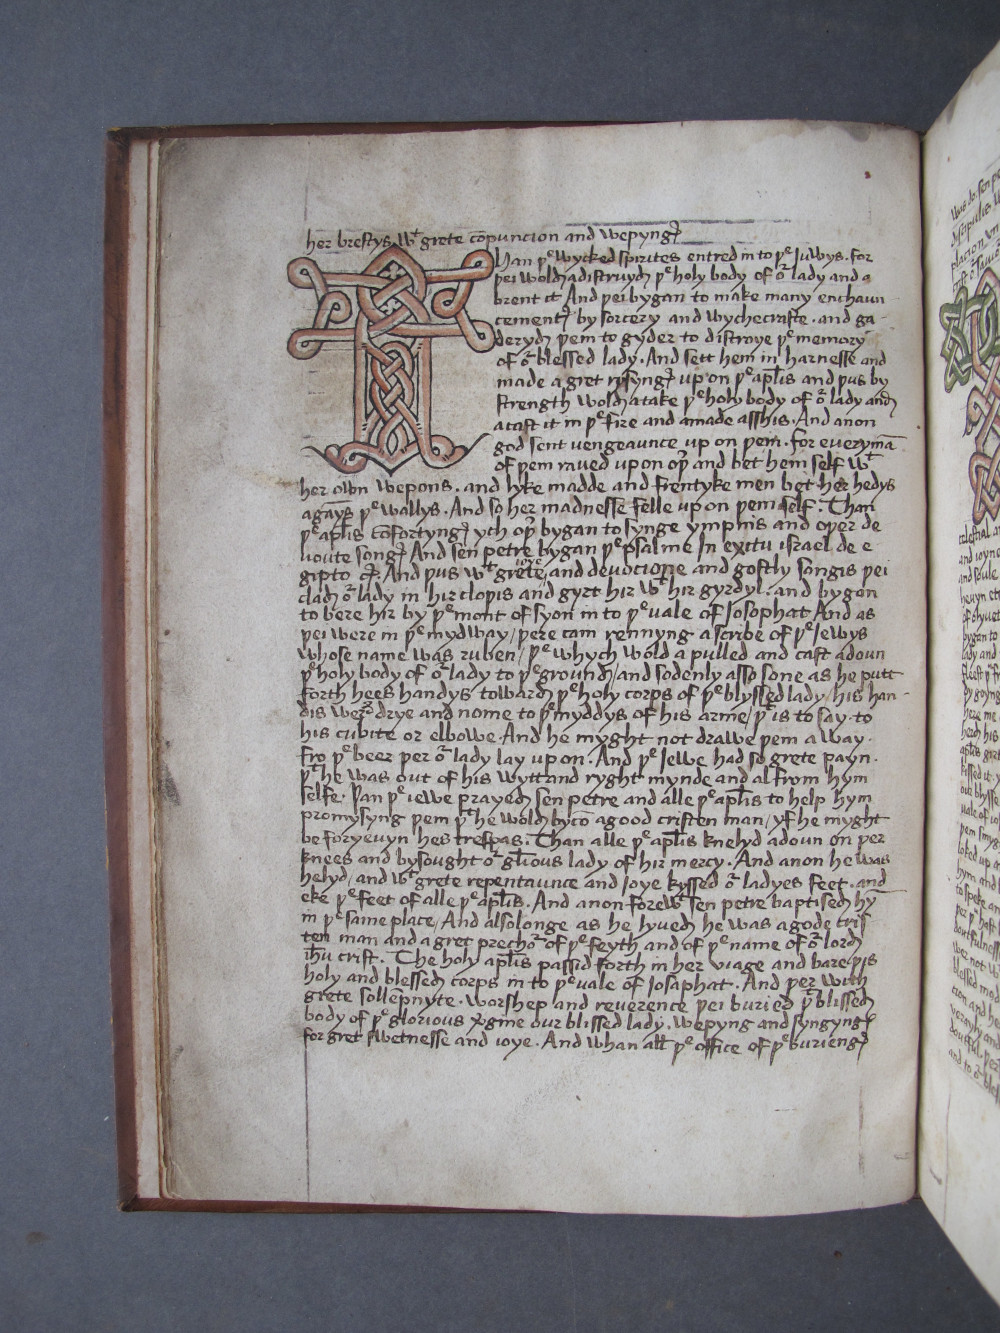 her brestys wᵗ grete cōpuncion and wepyngꝭ
THan þᵉ wycked spirites entred in to þᵉ Juwys. for
þei woldꝭ adistruydꝭ þᵉ holy body of oʳ lady and a
brent it And þei bygan to make many enchaun
cementꝭ by sorcery and wychecrafte. and ga-
derydꝭ þem to gyder to distroye þᵉ memory
of oʳ blessed lady. And sett hem in harnesse and
made a gret rysyngꝭ up on þᵉ apl̄is and þus by
strength woldꝭ atake þᵉ holy body of oʳ lady andꝭ
a cast it in þᵉ fire and amade asshis. And anon
god sent vengeaunce up on þem. for everymā
of þem raved upon oþʳ and bet hem self wᵗ
her own wepons. and lyke madde and frentyke men bet her hedys
agayns þᵉ wallys. And so her madnesse felle up on þem self. Than
þᵉ apl̄is cōfortyngꝭ ych oþʳ bygan to synge ympnis and oþer de
uoute songꝭ And sen petre bygan þᵉ psalme In exitu israel de e
gipto &c. And þus wᵗ grete ioye and deuocione and gostly songis þei
cladꝭ oʳ lady in hir clopis and gyrt hir wᵗ hir gyrdyl. and bygan
to bere hir by þᵉ mont of syon in to þᵉ vale of Josophat And as
þei were in þᵉ mydway / þere cam rennyng a scribe of þᵉ Jewys
whose name was ruben / þᵉ whych wold a pulled and cast adoun
þᵉ holy body of oʳ lady to þᵉ groundꝭ / and sodenly asso sone as he putt
forth hees handys towardꝭ þᵉ holy corps of þᵉ blyssed lady / his han-
dis werꝭ drye and nome to þᵉ myddys of his arme / þᵗ is to say. to
his cubite or elbowe. And he myght not drawe þem a way.
fro þᵉ beer þer oʳ lady lay up on. And þᵉ Jewe had so grete payn.
þᵗ he was out of his wytt and ryght mynde and al from hym
selfe. Þan þᵉ iewe prayedꝭ sen petre and alle þᵉ apl̄is to help hym
promysyng þem þᵗ he woldꝭ bycō a good cristen man / yf he myght
be foryevyn hes trespas. Than alle þᵉ apl̄is knelyd adoun on þer
knees and bysought oʳ gl̄ious lady of hir mercy. And anon he was
helyd / and wᵗ grete repentaunce and ioye kyssed oʳ ladyes feet. and
eke þᵉ feet of alle þᵉ apl̄is. And anon forewᵗ sen petre baptisedꝭ hȳ
in þᵉ same place / And alsolonge as he lyuedꝭ he was a gode cris
ten man and a gret prechoʳ of þᵉ feyth and of þᵉ name of oʳ lordꝭ
ih̄u crist. The holy apl̄is passid forth in her viage and bare þis
holy and blessedꝭ corps in to þᵉ vale of Josaphat. And þer with
grete sollēpnyte. worshep and reverence þei buried þᵉ blissedꝭ
body of þᵉ glorious vʳgine our blissed lady. wepyng and syngyngꝭ
for gret swetnesse and ioye. And whan all þᵉ office of þᵉ buriengꝭ